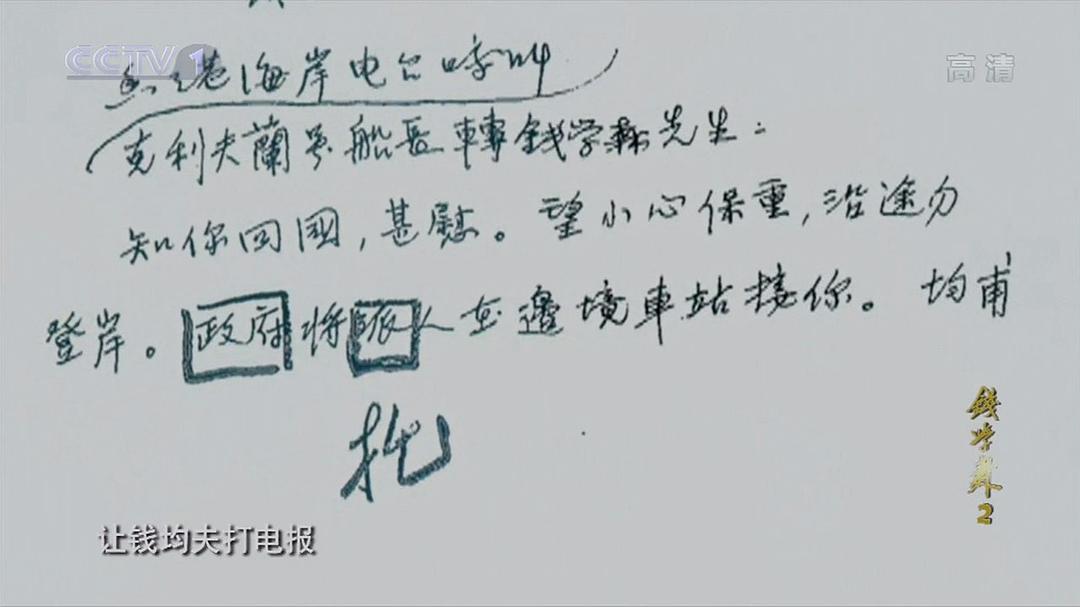 CCTV 1
高清
香港海岸电台呼叫
克利夫蘭号船長轉錢学森先生：
知你回國，甚慰。望小心保重，沿途勿
登岸。政府将派人至邊境車站接你。均甫
托
錢学森2
让钱均夫打电报